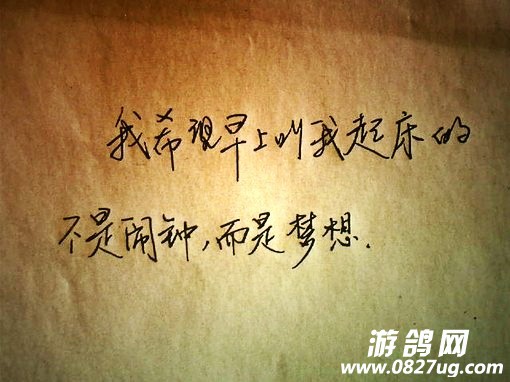 我希望早上叫我起床的
不是闹钟,而是梦想.
游鸽网
www.0827ug.com